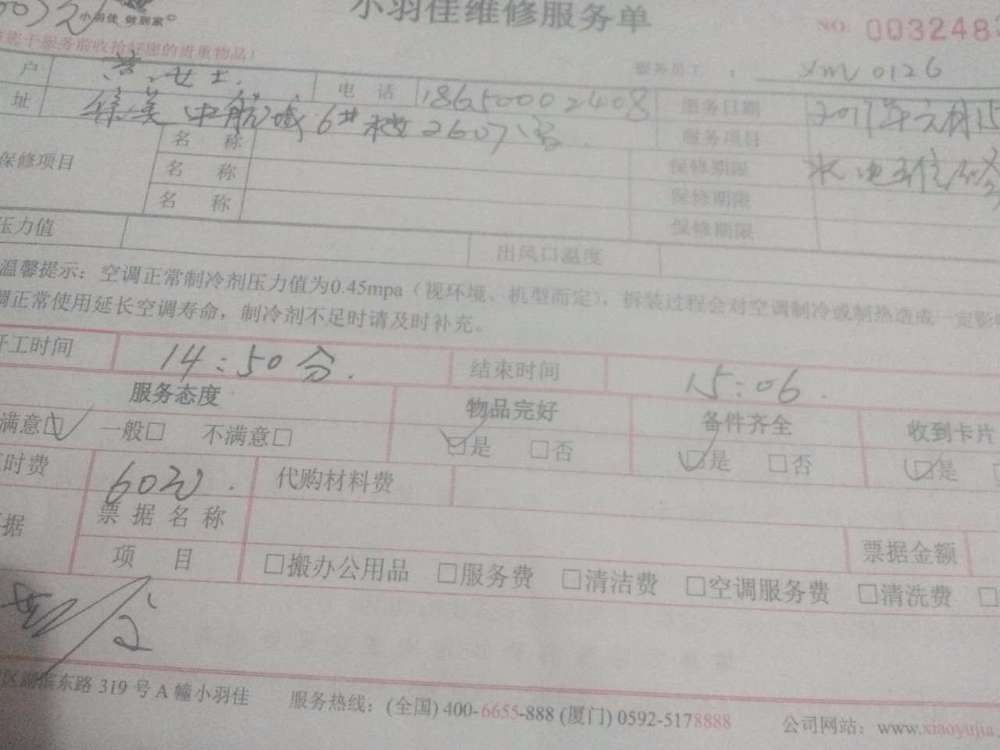 小羽佳 做到家
小羽佳维修服务单
NO. 003248
服务前收拾好您的贵重物品!
服务员工: xm0126
户 黄女士. 电 话 18650002408 服务日期 2017年六月15
址 集美中航城6#楼2607号. 服务项目 水电维修
保修项目
名 称 保修期限
名 称 保修期限
名 称 保修期限
压力值 出风口温度
温馨提示:空调正常制冷剂压力值为0.45mpa(视环境、机型而定),拆装过程会对空调制冷或制热造成一定影
正常使用延长空调寿命,制冷剂不足时请及时补充。
开工时间 14:50分. 结束时间 15:06.
服务态度 物品完好 备件齐全 收到卡片
满意☑ 一般□ 不满意□ ☑是 □否 ☑是 □否 ☑是
时费 60元. 代购材料费
据 票据名称 票据金额
项 目 □搬办公用品 □服务费 □清洁费 □空调服务费 □清洗费 □
区湖滨东路 319 号 A 幢小羽佳 服务热线:(全国) 400-6655-888 (厦门) 0592-5178888 公司网站:www.xiaoyujia.